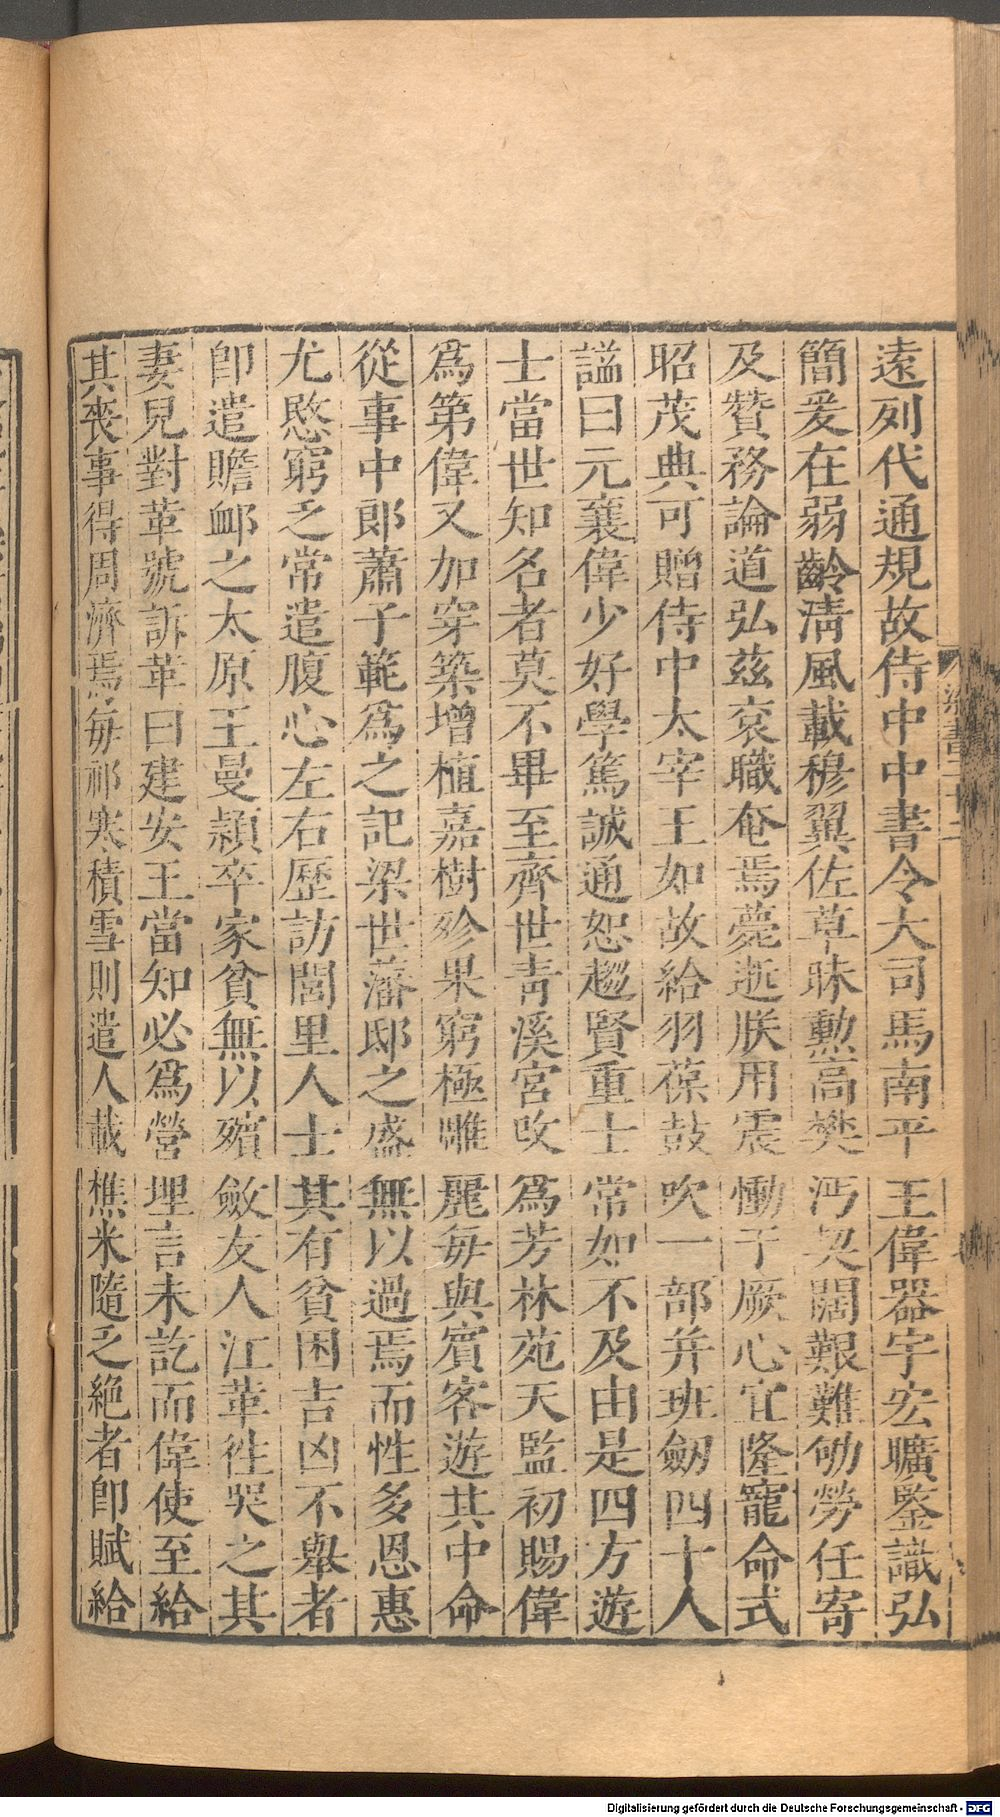 遠列代通規故侍中中書令大司馬南平王偉器宇宏曠鑒識弘
簡爰在弱齡淸風載穆翼佐草昧勲高樊沔契闊艱難劬勞任寄
及贊務論道弘茲衮職奄焉薨逝朕用震慟于厥心宜隆寵命式
昭茂典可贈侍中太宰王如故給羽葆鼓吹一部并班劒四十人
諡曰元襄偉少好學篤誠通恕趨賢重士常如不及由是四方遊
士當世知名者莫不畢至齊世靑溪宮改爲芳林苑天監初賜偉
爲第偉又加穿築增植嘉樹珍果窮極雕麗每與賓客遊其中命
從事中郎蕭子範爲之記梁世藩邸之盛無以過焉而性多恩惠
尤愍窮乏常遣腹心左右歷訪閭里人士其有貧困吉凶不舉者
卽遣贍卹之太原王曼穎卒家貧無以殯斂友人江革往哭之其
妻兒對革號訴革曰建安王當知必爲營埋言未訖而偉使至給
其喪事得周濟焉每祁寒積雪則遣人載樵米隨乏絕者卽賦給
Digitalisierung gefördert durch die Deutsche Forschungsgemeinschaft - DFG